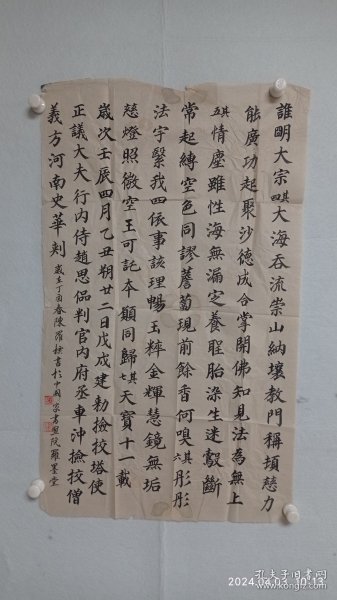 誰明大宗其四大海吞流崇山納壤教門稱頓慈力
能廣功起聚沙德成合掌開佛知見法為無上
其五情塵雖性海無漏定養聖胎染生迷鷇斷
常起縛空色同謬薝蔔現前餘香何嗅其六彤彤
法宇緊我四依事該理暢玉粹金輝慧鏡無垢
慈燈照微空王可託本願同歸其七天寶十一載
歲次壬辰四月乙丑朔廿二日戊戌建勅撿挍塔使
正議大夫行內侍趙思偘判官內府丞車沖撿挍僧
義方河南史華刻歲在丁酉春陳書於中國墨堂
2024.04.03 10:13
孔夫子旧书网